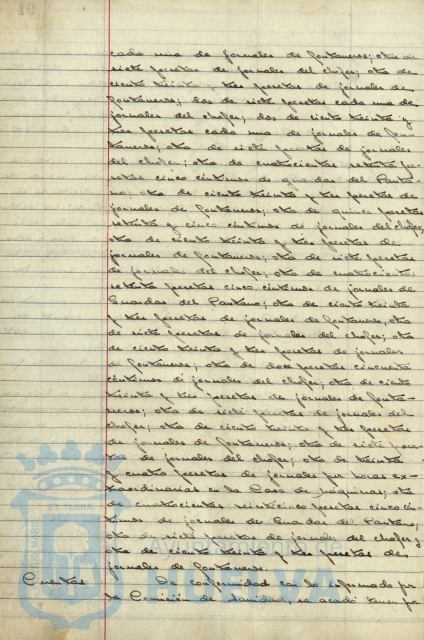 cada una de jornales de fontaneros; otra de
siete pesetas de jornales del chofer; otra de
ciento treinta y tres pesetas de jornales de
fontaneros; dos de siete pesetas cada una de
jornales del chofer; dos de ciento treinta y
tres pesetas cada una de jornales de fon-
taneros; otra de siete pesetas de jornales
del chofer; otra de cuatrocientas pe-
setas cinco céntimos de guardas del Panta-
no; otra de ciento treinta y tres pesetas de
jornales de fontaneros; otra de quince pesetas
y cinco céntimos de jornales del chofer;
otra de ciento treinta y tres pesetas de
jornales de fontaneros; otra de siete pesetas
de jornales del chofer; otra de cuatrocientas
pesetas cinco céntimos de jornales de
Guardas del Pantano; otra de ciento treinta
y tres pesetas de jornales de fontaneros; otra
de siete pesetas de jornales del chofer; otra
de ciento treinta y tres pesetas de jornales
de fontaneros; otra de doce pesetas cincuenta
céntimos de jornales del chofer; otra de ciento
treinta y tres pesetas de jornales de fonta-
neros; otra de siete pesetas de jornales del
chofer; otra de ciento treinta y tres pesetas
de jornales de fontaneros; otra de siete pese-
tas de jornales del chofer; otra de treinta
y cuatro pesetas de jornales por horas ex-
traordinarias en la Casa de máquinas; otra
de cuatrocientas veinticinco pesetas cinco cén-
timos de jornales de Guardas del Pantano;
otra de siete pesetas de jornales del chofer y
otra de ciento treinta y tres pesetas de
jornales de fontaneros.
Cuentas De conformidad con lo informado por
la Comisión de Sanidad, se acordó tener por
Ayuntamiento de
HUELVA